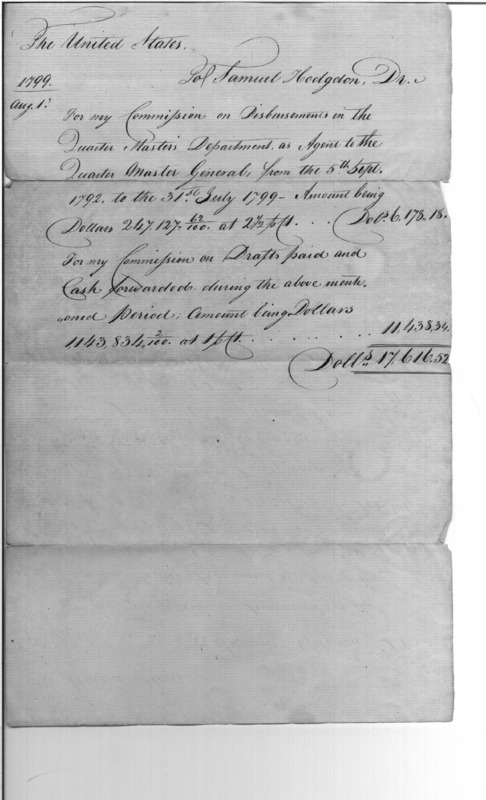 The United States.
To Samuel Hodgdon, Dr.
1799.
Aug. 1st
For my Commission on Disbursements in the
Quarter Master's Department as Agent to the
Quarter Master General, from the 5th Sept.
1792. to the 31st July 1799 - Amount being
Dollars 247.127. 62/100. at 2 1/2 p Ct. . . . Doll's 6.178.18.
For my Commission on Drafts paid and
Cash forwarded during the above ment-
-ioned Period, Amount being Dollars
1143.834. 2/100. at 1 p Ct. . . . . . . . . 11.438.34.
Doll's 17.616.52